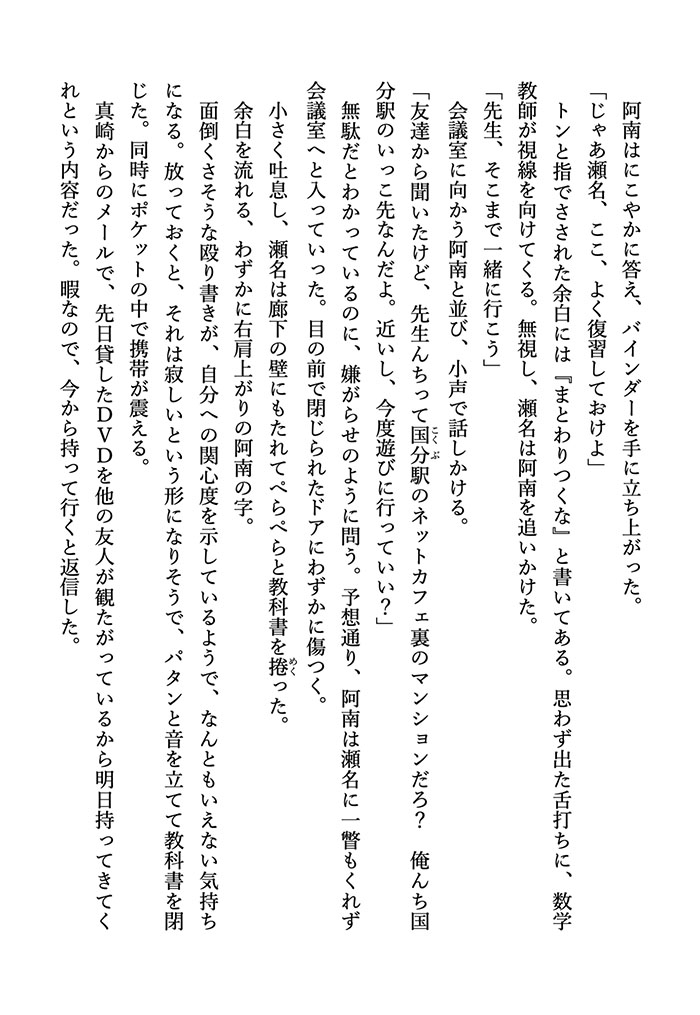 阿南はにこやかに答え、バインダーを手に立ち上がった。
「じゃあ瀬名、ここ、よく復習しておけよ」
トンと指でさされた余白には『まとわりつくな』と書いてある。思わず出た舌打ちに、数学
教師が視線を向けてくる。無視し、瀬名は阿南を追いかけた。
「先生、そこまで一緒に行こう」
会議室に向かう阿南と並び、小声で話しかける。
「友達から聞いたけど、先生んちって国分駅のネットカフェ裏のマンションだろ？　俺んち国
こくぶ
分駅のいっこ先なんだよ。近いし、今度遊びに行っていい？」
無駄だとわかっているのに、嫌がらせのように問う。予想通り、阿南は瀬名に一瞥もくれず
会議室へと入っていった。目の前で閉じられたドアにわずかに傷つく。
小さく吐息し、瀬名は廊下の壁にもたれてぺらぺらと教科書を捲った。
めく
余白を流れる、わずかに右肩上がりの阿南の字。
面倒くさそうな殴り書きが、自分への関心度を示しているようで、なんともいえない気持ち
になる。放っておくと、それは寂しいという形になりそうで、パタンと音を立てて教科書を閉
じた。同時にポケットの中で携帯が震える。
真崎からのメールで、先日貸したＤＶＤを他の友人が観たがっているから明日持ってきてく
れという内容だった。暇なので、今から持って行くと返信した。